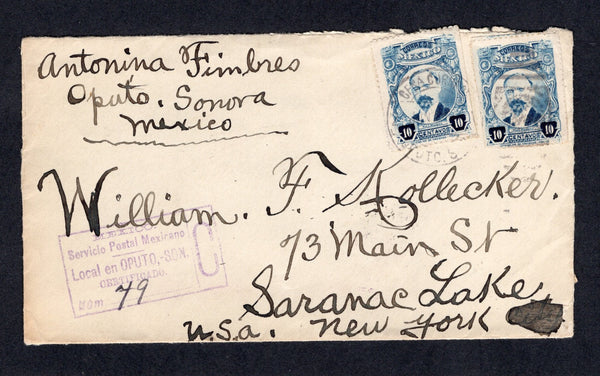 Antonina Fimbres
Oputo. Sonora
Mexico
CORREOS CORREOS
MEXICO MEXICO
10 CENTAVOS 10 10 CENTAVOS 10
OPTO. S
William. F. Kollecker.
73 Main St
Saranac Lake
U.S.a. New York
MEXICO
Servicio Postal Mexicano
Local en OPUTO,-SON.
CERTIFICADO.
Num 79
C